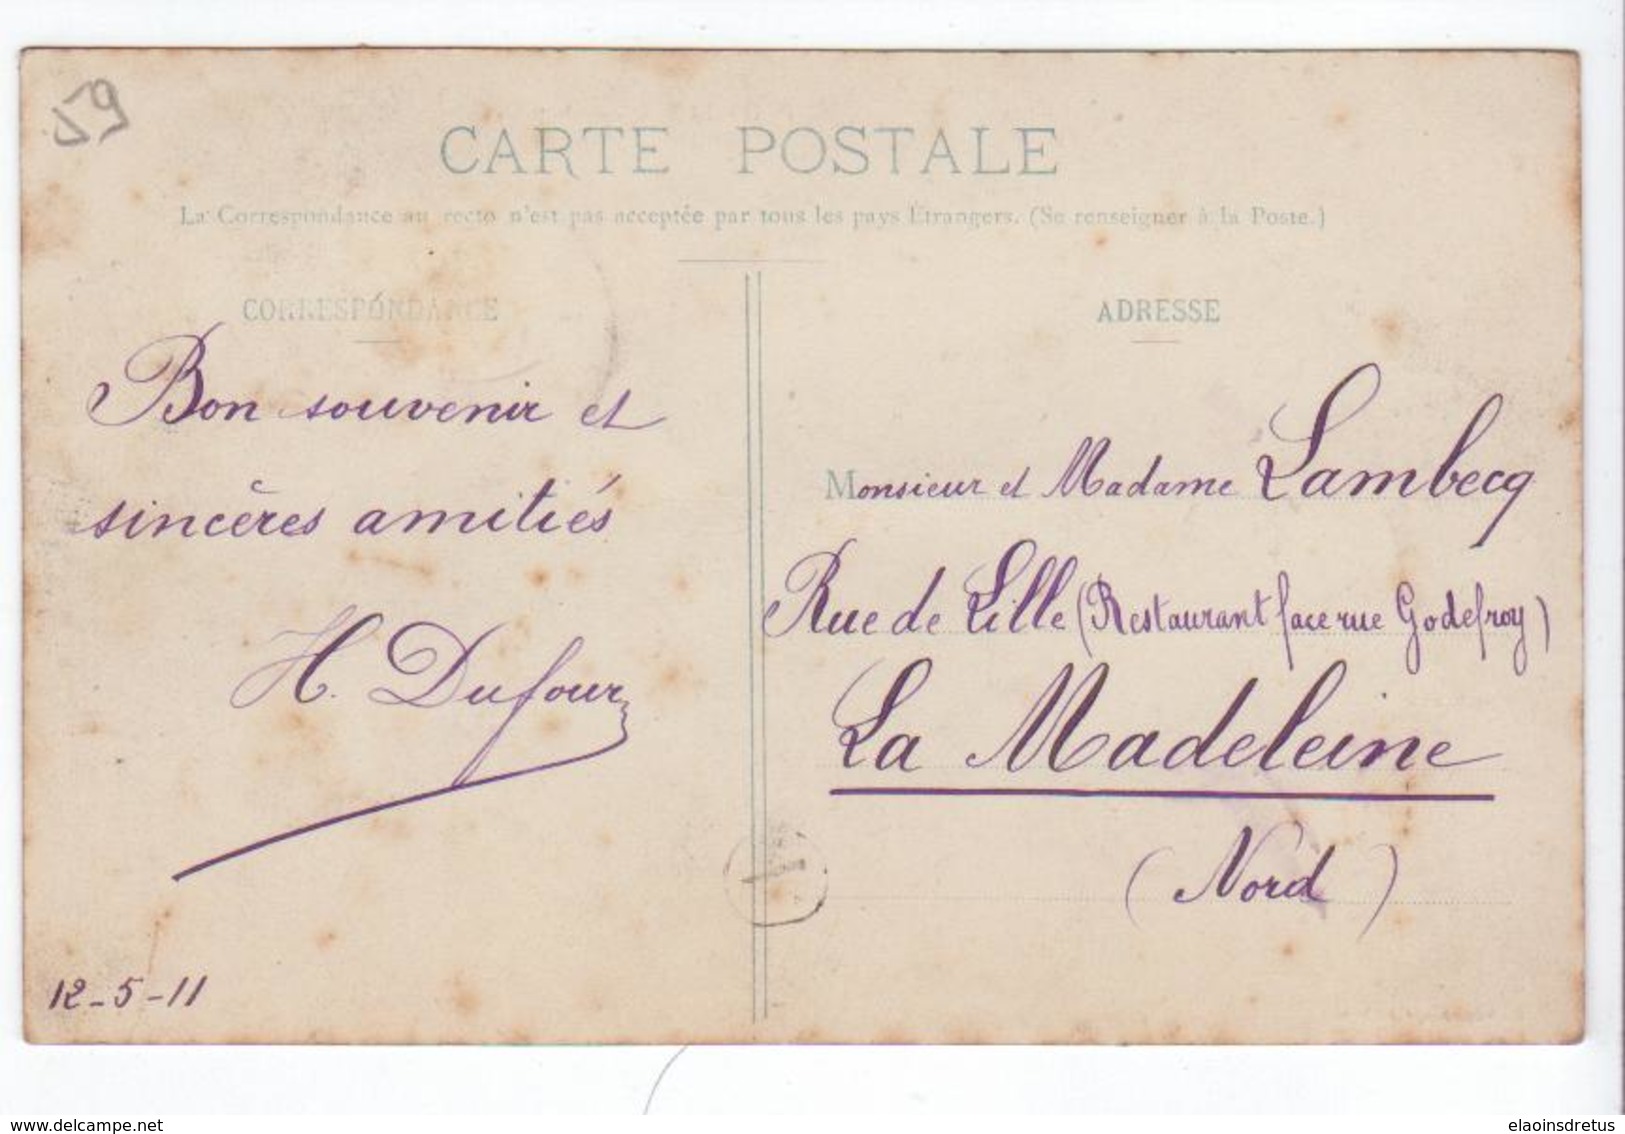 59
CARTE POSTALE
La Correspondance au recto n'est pas acceptée par tous les pays Etrangers. (Se renseigner à la Poste.)
CORRESPONDANCE
Bon souvenir et
sincères amitiés
H. Dufour
12-5-11
ADRESSE
Monsieur et Madame Lambecq
Rue de Lille (Restaurant face rue Godefroy)
La Madeleine
(Nord)
www.delcampe.net
elaoinsdretus